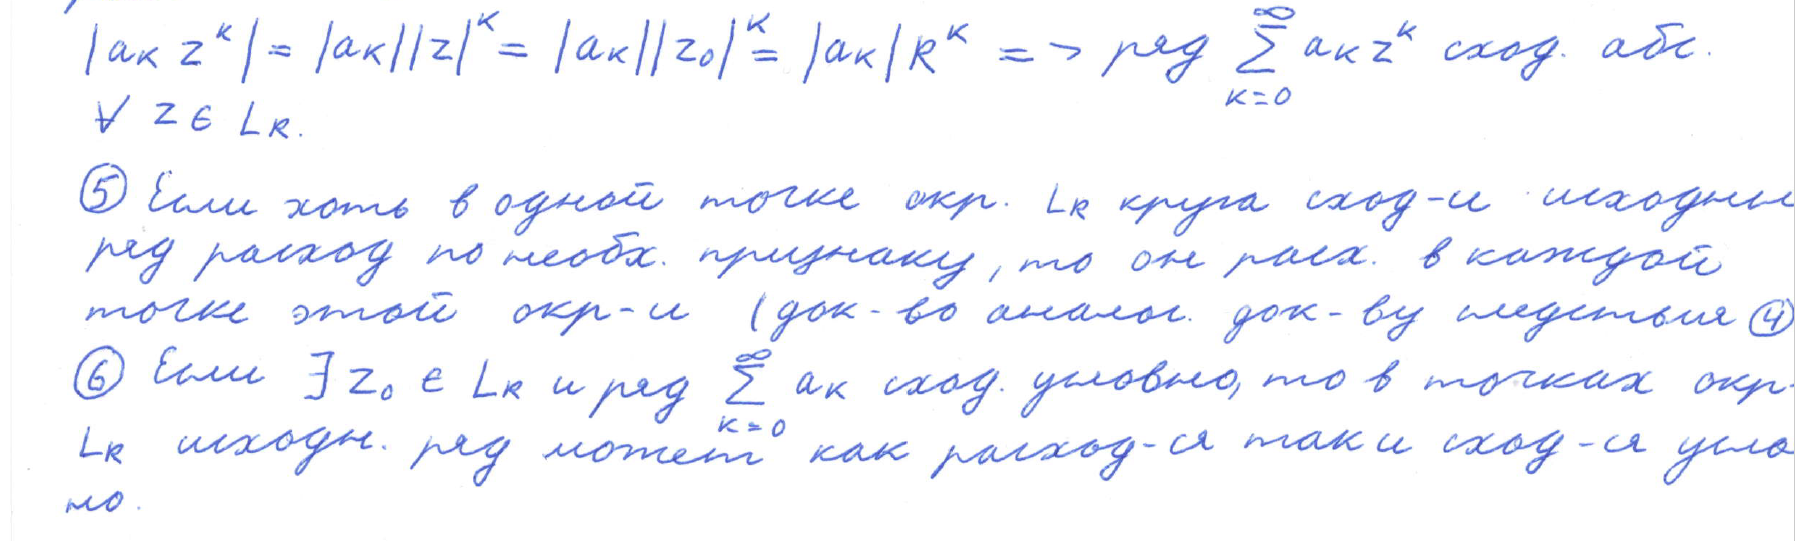 |aₖ zᵏ| = |aₖ||z|ᵏ = |aₖ||z₀|ᵏ = |aₖ|Rᵏ => ряд ∑_{k=0}^{∞} aₖzᵏ сход. абс.
∀ z ∈ L_R.
⑤ Если хоть в одной точке окр. L_R круга сход-и исходны
ряд расход по необх. признаку, то он расх. в каждой
точке этой окр-и (док-во аналог. док-ву следствия ④
⑥ Если ∃ z₀ ∈ L_R и ряд ∑_{k=0}^{∞} aₖ сход. условно, то в точках окр-
L_R исходн. ряд может как расход-ся так и сход-ся усло
но.